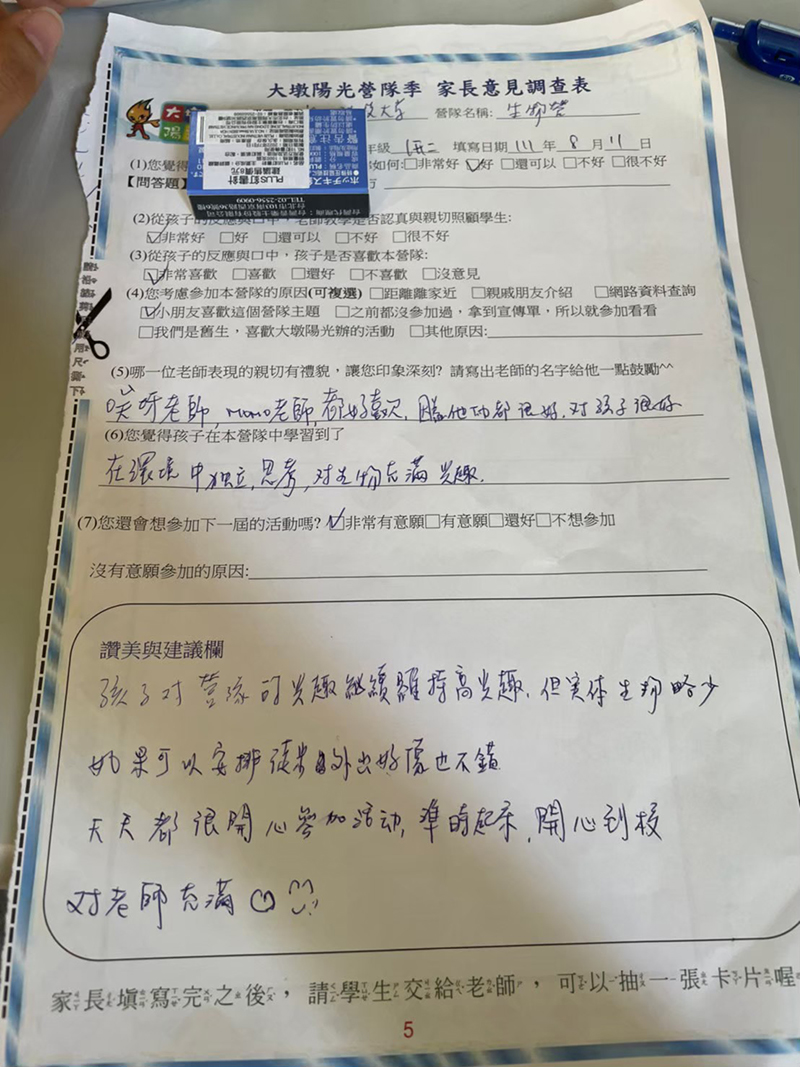 大墩陽光營隊季 家長意見調查表
大學 營隊名稱: 生物營
年級 填寫日期 111 年 8 月 11 日
(1)您覺得 如何:□非常好 ☑好 □還可以 □不好 □很不好
【問答題】 行
(2)從孩子的反應與口中，老師教學是否認真與親切照顧學生:
☑非常好 □好 □還可以 □不好 □很不好
(3)從孩子的反應與口中，孩子是否喜歡本營隊:
☑非常喜歡 □喜歡 □還好 □不喜歡 □沒意見
(4)您考慮參加本營隊的原因(可複選) □距離離家近 □親戚朋友介紹 □網路資料查詢
☑小朋友喜歡這個營隊主題 □之前都沒參加過，拿到宣傳單，所以就參加看看
□我們是舊生，喜歡大墩陽光辦的活動 □其他原因:
(5)哪一位老師表現的親切有禮貌，讓您印象深刻? 請寫出老師的名字給他一點鼓勵^^
老師, momo老師, 都好喜歡, 都很好, 對孩子很好
(6)您覺得孩子在本營隊中學習到了
在環境中獨立,思考,对生物充滿兴趣.
(7)您還會想參加下一屆的活動嗎? ☑非常有意願□有意願□還好□不想參加
沒有意願參加的原因:
讚美與建議欄
孩子对營隊的兴趣継續維持高兴趣, 但实体生物略少
如果可以安排徒步外出好像也不錯
天天都很開心參加活动, 準時起床, 開心到校
对老師充滿
家長填寫完之後，請學生交給老師，可以抽一張卡片喔
5
PLUS釘書針
TEL:02-2556-0909